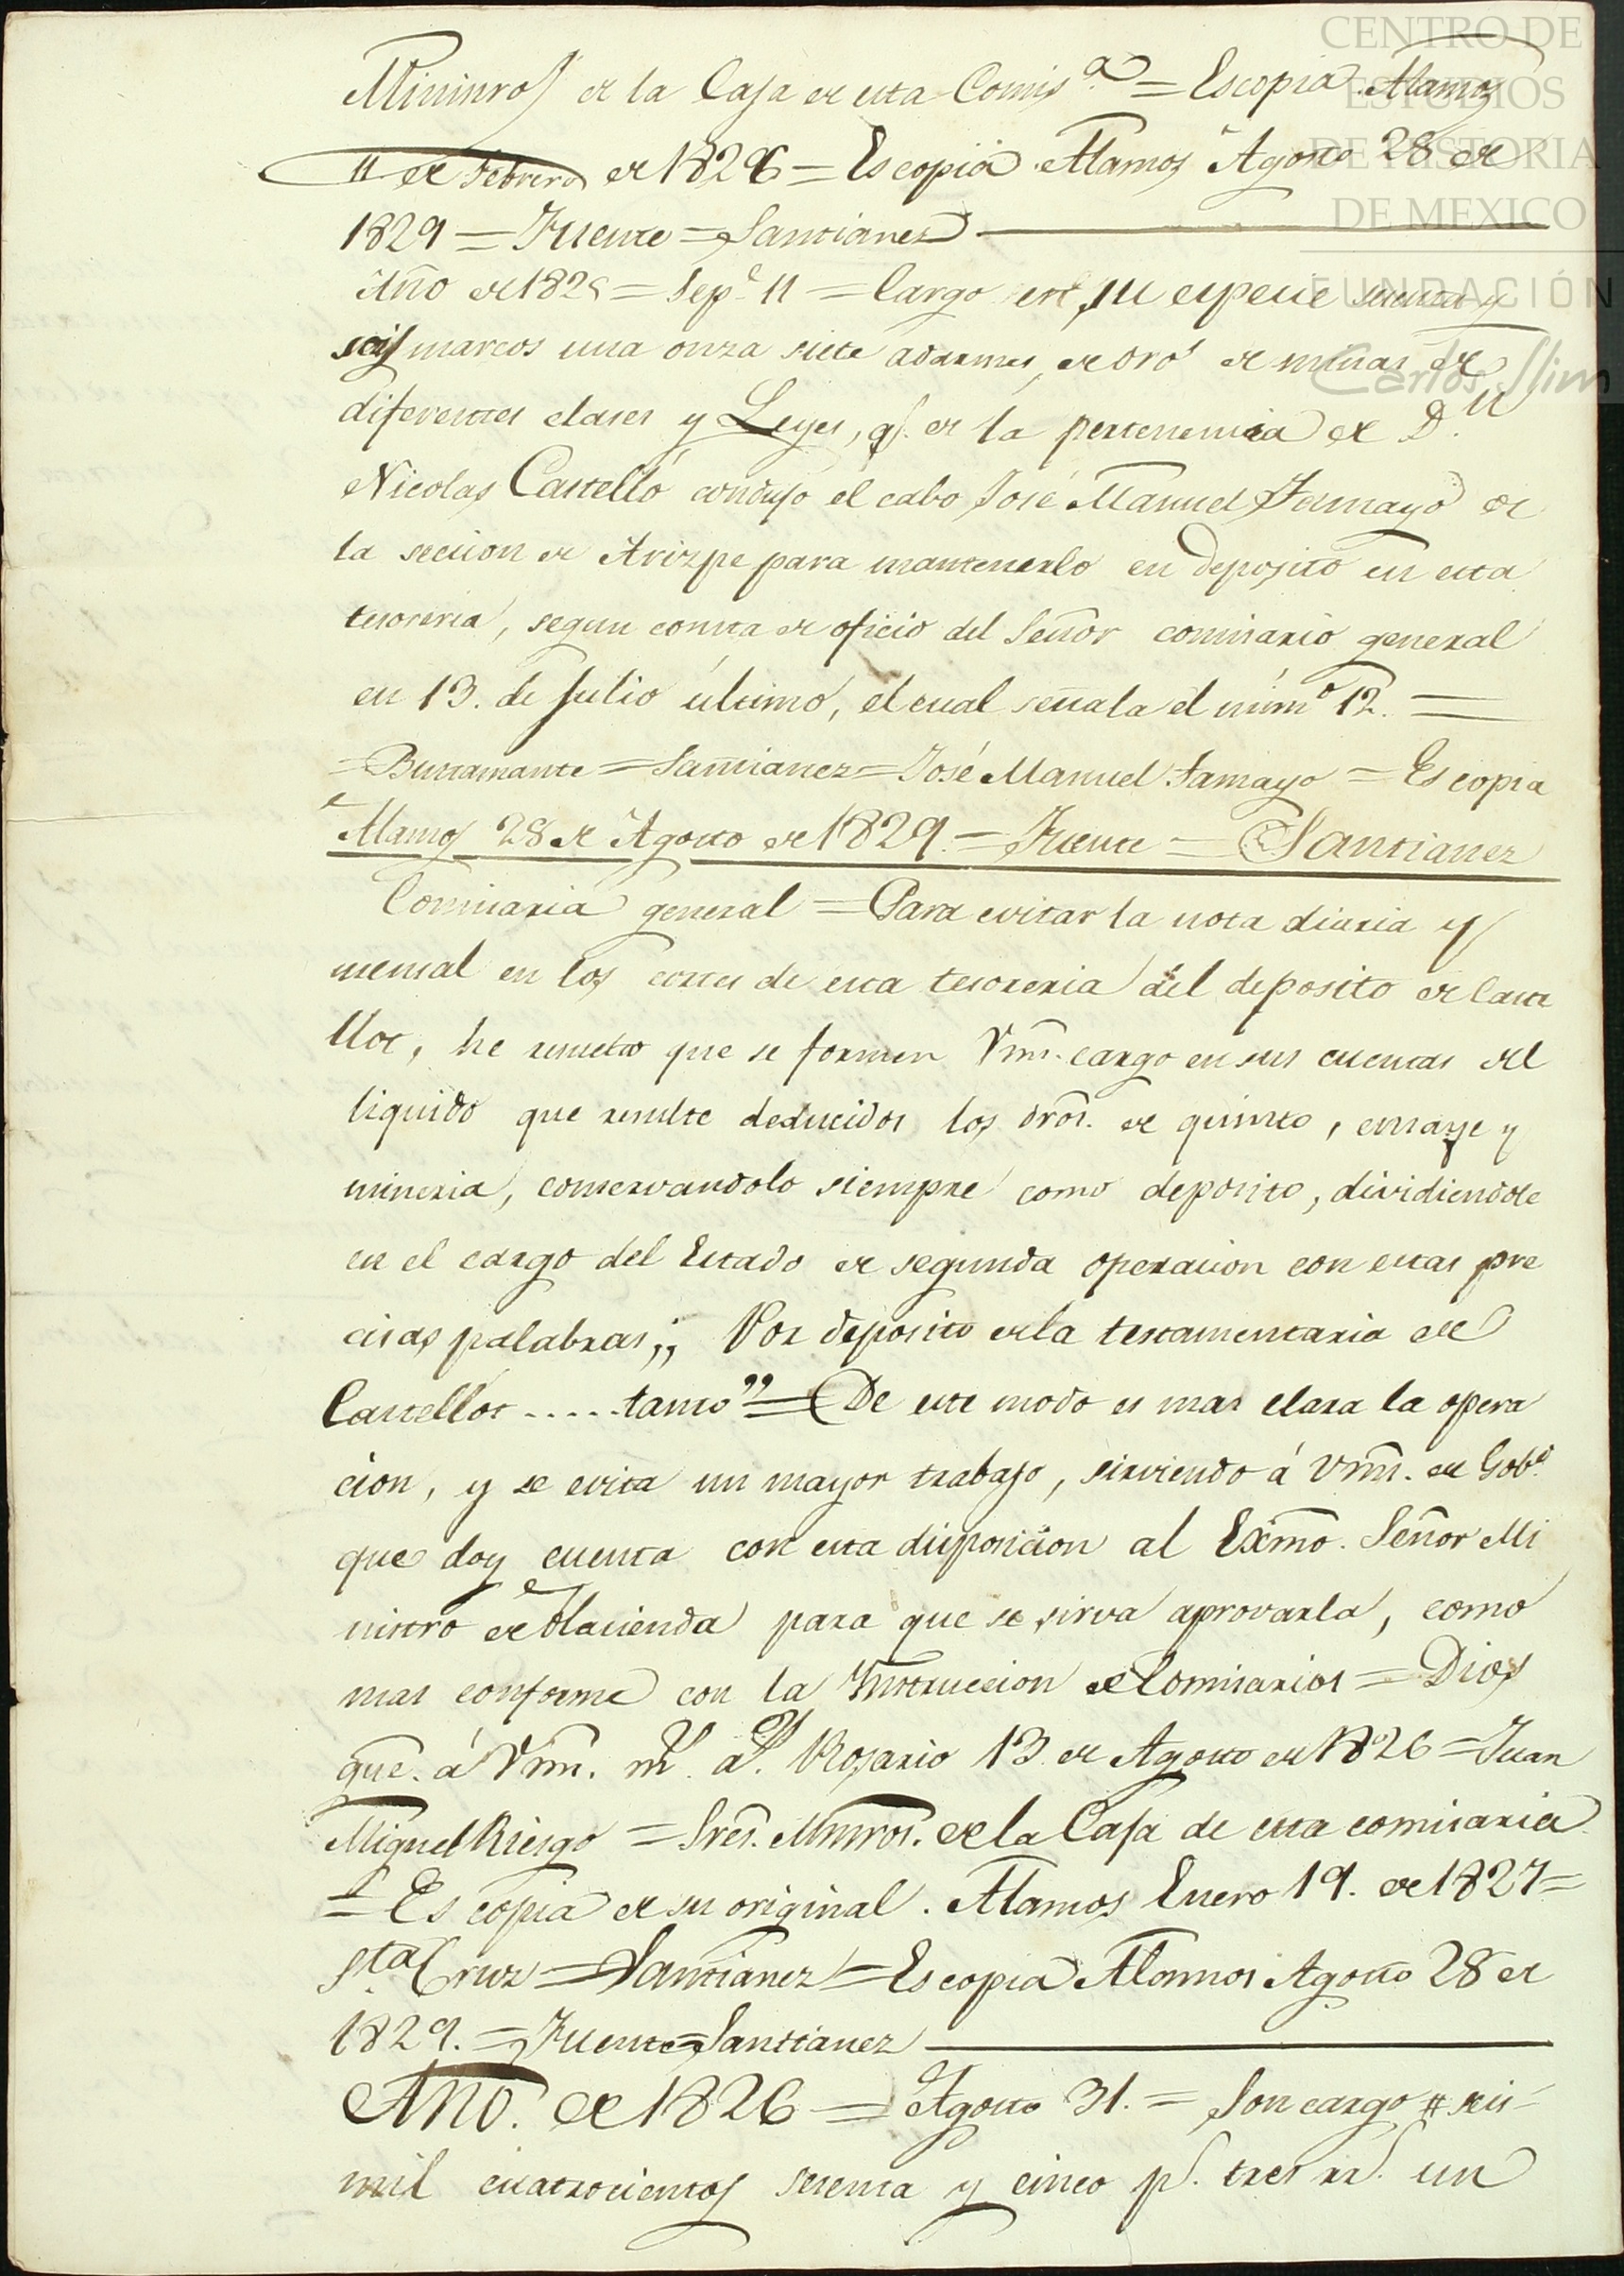 CENTRO DE
ESTUDIOS
DE HISTORIA
DE MEXICO
FUNDACIÓN
Carlos Slim
Ministros de la Caja de esta Comis.ª = Es copia Alamos
11 de Febrero de 1826 = Es copia Alamos Agosto 28 de
1829 = Fuente = Santianez
Año de 182 = Sep.e 11 = Cargo en su especie sesenta y
seis marcos una onza siete adarmes, de oro de minas de
diferentes clases y Leyes, q.e de la pertenencia de D.n
Nicolas Castelló condujo el cabo José Manuel Tamayo de
la seccion de Arizpe para mantenerlo en deposito en esta
tesoreria, segun consta de oficio del Señor comisario general
en 13. de Julio último, el cual señala el núm.o 12. =
= Bustamante = Santianez = José Manuel Tamayo = Es copia
Alamos 28 de Agosto de 1829. = Fuente = Santianez
Comisaria general = Para evitar la nota diaria y
mensal en los cortes de esta tesoreria del deposito de Caste
llot, he resuelto que se formen Vms. cargo en sus cuentas del
liquido que resulte deducidos los dros. de quinto, ensaye y
mineria, conservandolo siempre como deposito, dividiendole
en el cargo del Estado de segunda operacion con estas pre
cisas palabras,, Por deposito de la testamentaria de
Castellot ..... tanto" = De este modo es mas clara la opera
cion, y se evita un mayor trabajo, sirviendo á Vms. de Gob.o
que doy cuenta con esta disposicion al Exmo. Señor Mi
nistro de Hacienda para que se sirva aprovarla, como
mas conforme con la Instruccion de Comisarios = Dios
gue. á Vms. m.s a.s Rosario 13. de Agosto de 1826 = Juan
Miguel Riesgo = Sres. Mntros. de la Caja de esta comisaria
= Es copia de su original. Alamos Enero 19. de 1827 =
Sta. Cruz = Santianez = Es copia Alamos Agosto 28 de
1829. = Fuente = Santianez
Año. de 1826 = Agosto 31. = Son cargo # seis
mil cuatrocientos sesenta y cinco p.s tres rr.s un